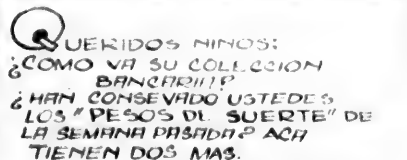 QUERIDOS NINOS:
¿COMO VA SU COLLCCION
BANCARIII?
¿HAN CONSEVADO USTEDES
LOS "PESOS DE SUERTE" DE
LA SEMANA PASADA? ACA
TIENEN DOS MAS.